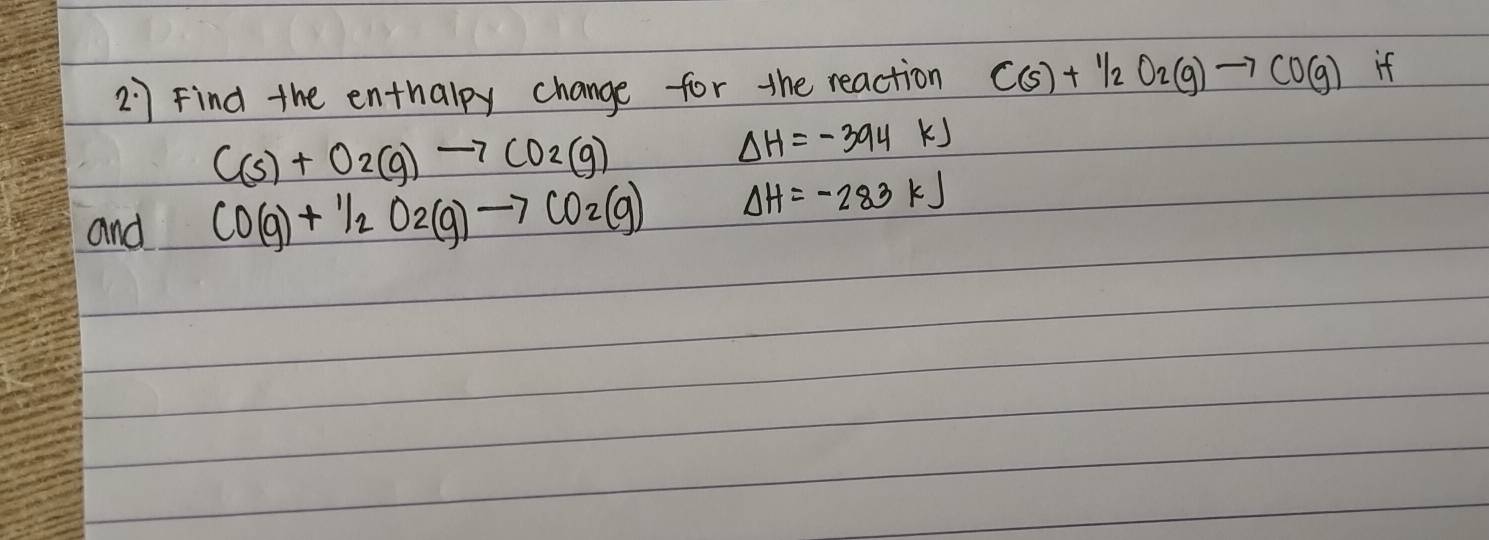 2.) Find the enthalpy change for the reaction C(s) + 1/2 O2(g) → CO(g) if
C(s) + O2(g) → CO2(g) ΔH = -394 kJ
and CO(g) + 1/2 O2(g) → CO2(g) ΔH = -283 kJ